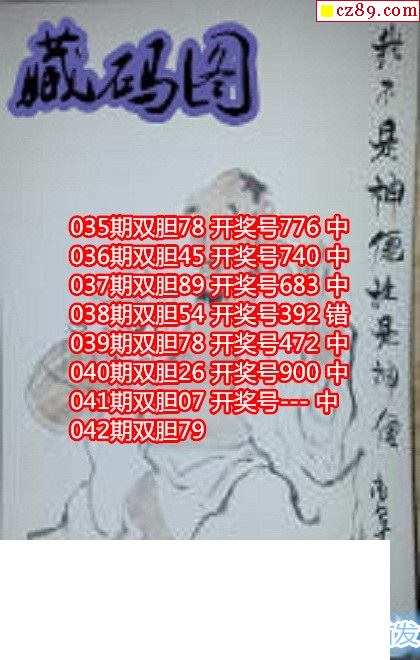 cz89.com
藏码图
035期双胆78 开奖号776 中
036期双胆45 开奖号740 中
037期双胆89 开奖号683 中
038期双胆54 开奖号392 错
039期双胆78 开奖号472 中
040期双胆26 开奖号900 中
041期双胆07 开奖号--- 中
042期双胆79
我不是神仙谁是神仙
发